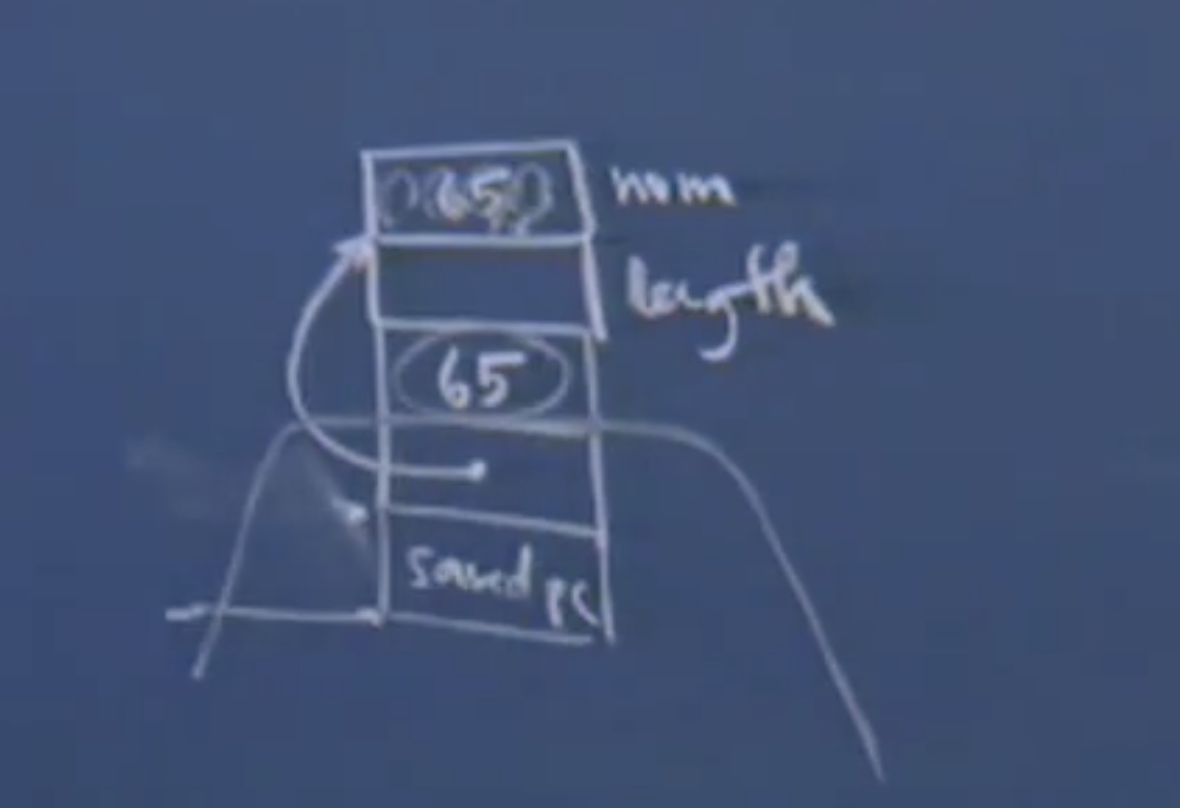 65 num
length
65
saved pc